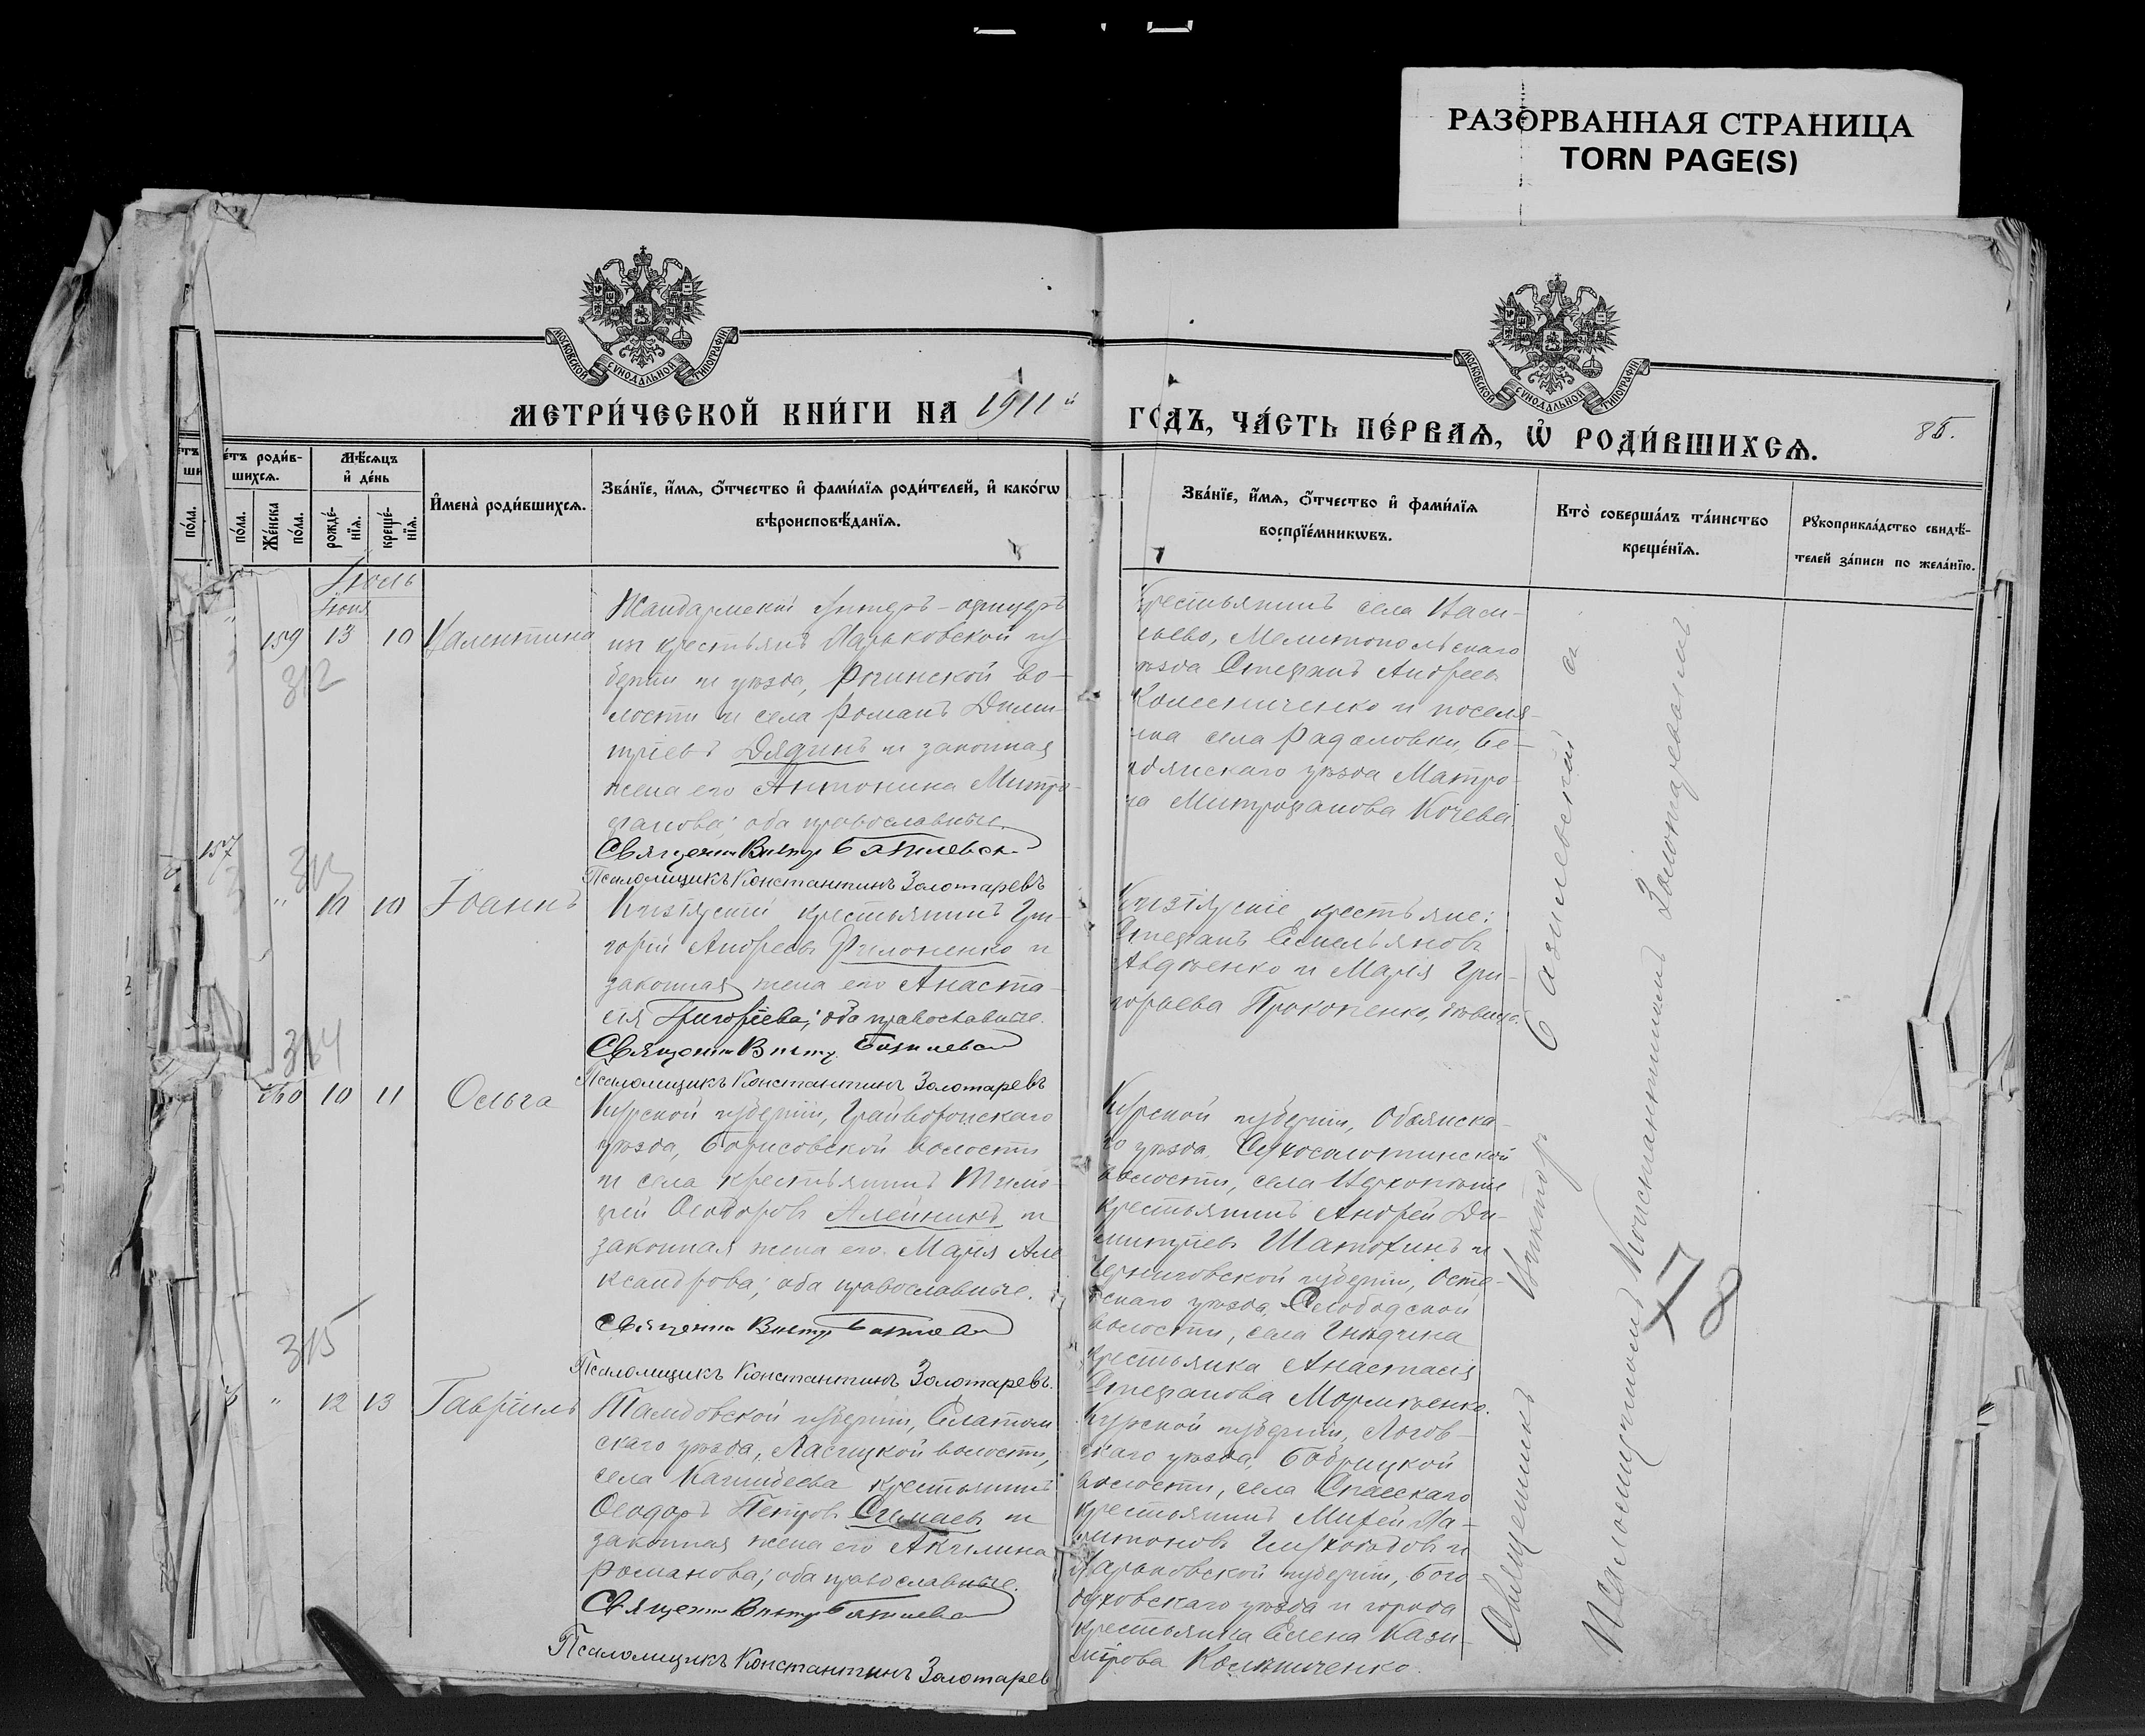 РАЗОРВАННАЯ СТРАНИЦА
TORN PAGE(S)
МОСКОВСКОЙ СУНОДАЛЬНОЙ ТИПОГРАФІИ
МОСКОВСКОЙ СУНОДАЛЬНОЙ ТИПОГРАФІИ
МЕТРИ́ЧЕСКОЙ КНИ́ГИ НА 1911й
ГОДЪ, ЧА́СТЬ ПЕ́РВАЯ, Ѡ҆ РОДИ́ВШИХСЯ.
85.
е́тъ роди́в-
шихся.
Мѣ́сяцъ
и҆ де́нь
по́ла.
по́ла.
Же́нска
по́ла.
рожде́-
нїя.
креще́-
нїя.
И҆мена̀ роди́вшихся.
Зва́нїе, и҆́мя, ѻ҆́тчество и҆ фами́лїя роди́телей, и҆ како́гѡ
вѣроисповѣ́данїя.
Зва́нїе, и҆́мя, ѻ҆́тчество и҆ фами́лїя
воспрїе́мникѡвъ.
Кто̀ соверша́лъ та́инство
креще́нїя.
Рꙋкоприкла́дство свидѣ́-
телей за́писи по жела́нїю.
Іюль
Іюня
159 13 10 Валентина
312
Жандармскій Унтеръ-офицеръ
изъ крестьянъ Харьковской гу-
берніи и уѣзда, во-
лости и села Романъ Дими-
тріевъ Дядинъ и законная
жена его Антонина Митро-
фанова; оба православные.
Священникъ Викторъ Базилевскій
Псаломщикъ Константинъ Золотаревъ
Крестьянинъ села Васи-
льево, Мелитопольскаго
уѣзда Стефанъ Андреевъ
Колесниченко и поселя-
нка села Радоловки, Бе-
рдянскаго уѣзда Матро-
на Митрофанова Кочева
157
313
" 10 10 Іоаннъ
Кизіярскій крестьянинъ Гри-
горій Андреевъ Филоненко и
законная жена его Анаста-
сія Григоріева; оба православные.
Священникъ Викторъ Базилевскій
Псаломщикъ Константинъ Золотаревъ
Кизіярскіе крестьяне:
Стефанъ Емельяновъ
Авдѣенко и Марія Гри-
горьева Прокопенко, дѣвица.
314
160 10 11 Ольга
Курской губерніи, Грайворонскаго
уѣзда, Борисовской волости
и села крестьянинъ Тимо-
фей Ѳеодоровъ Алейникъ и
законная жена его Марія Але-
ксандрова; оба православные.
Священникъ Викторъ Базилевскій
Псаломщикъ Константинъ Золотаревъ.
Курской губерніи, Обоянска-
го уѣзда, Сухосолотинской
волости, села
крестьянинъ Андрей Ди-
митріевъ Шатохинъ и
Черниговской губерніи, Осте-
рскаго уѣзда, Слободской
волости, села Гнѣдина
крестьянка Анастасія
Стефанова
315
" 12 13 Гавріилъ
Тамбовской губерніи, Елатом-
скаго уѣзда, волости,
села крестьянинъ
Ѳеодоръ Петровъ и
законная жена его Акилина
Романова; оба православные.
Священникъ Викторъ Базилевскій
Псаломщикъ Константинъ Золотарев
Курской губерніи, Льгов-
скаго уѣзда, Бобрицкой
волости, села Спасскаго
крестьянинъ Ха-
ритоновъ и
Харьковской губерніи, Бого-
духовскаго уѣзда и города
крестьянка Елена Кази-
мірова Колѣниченко.
Священникъ Викторъ Базилевскій съ
Псаломщикомъ Константиномъ Золотаревымъ
78